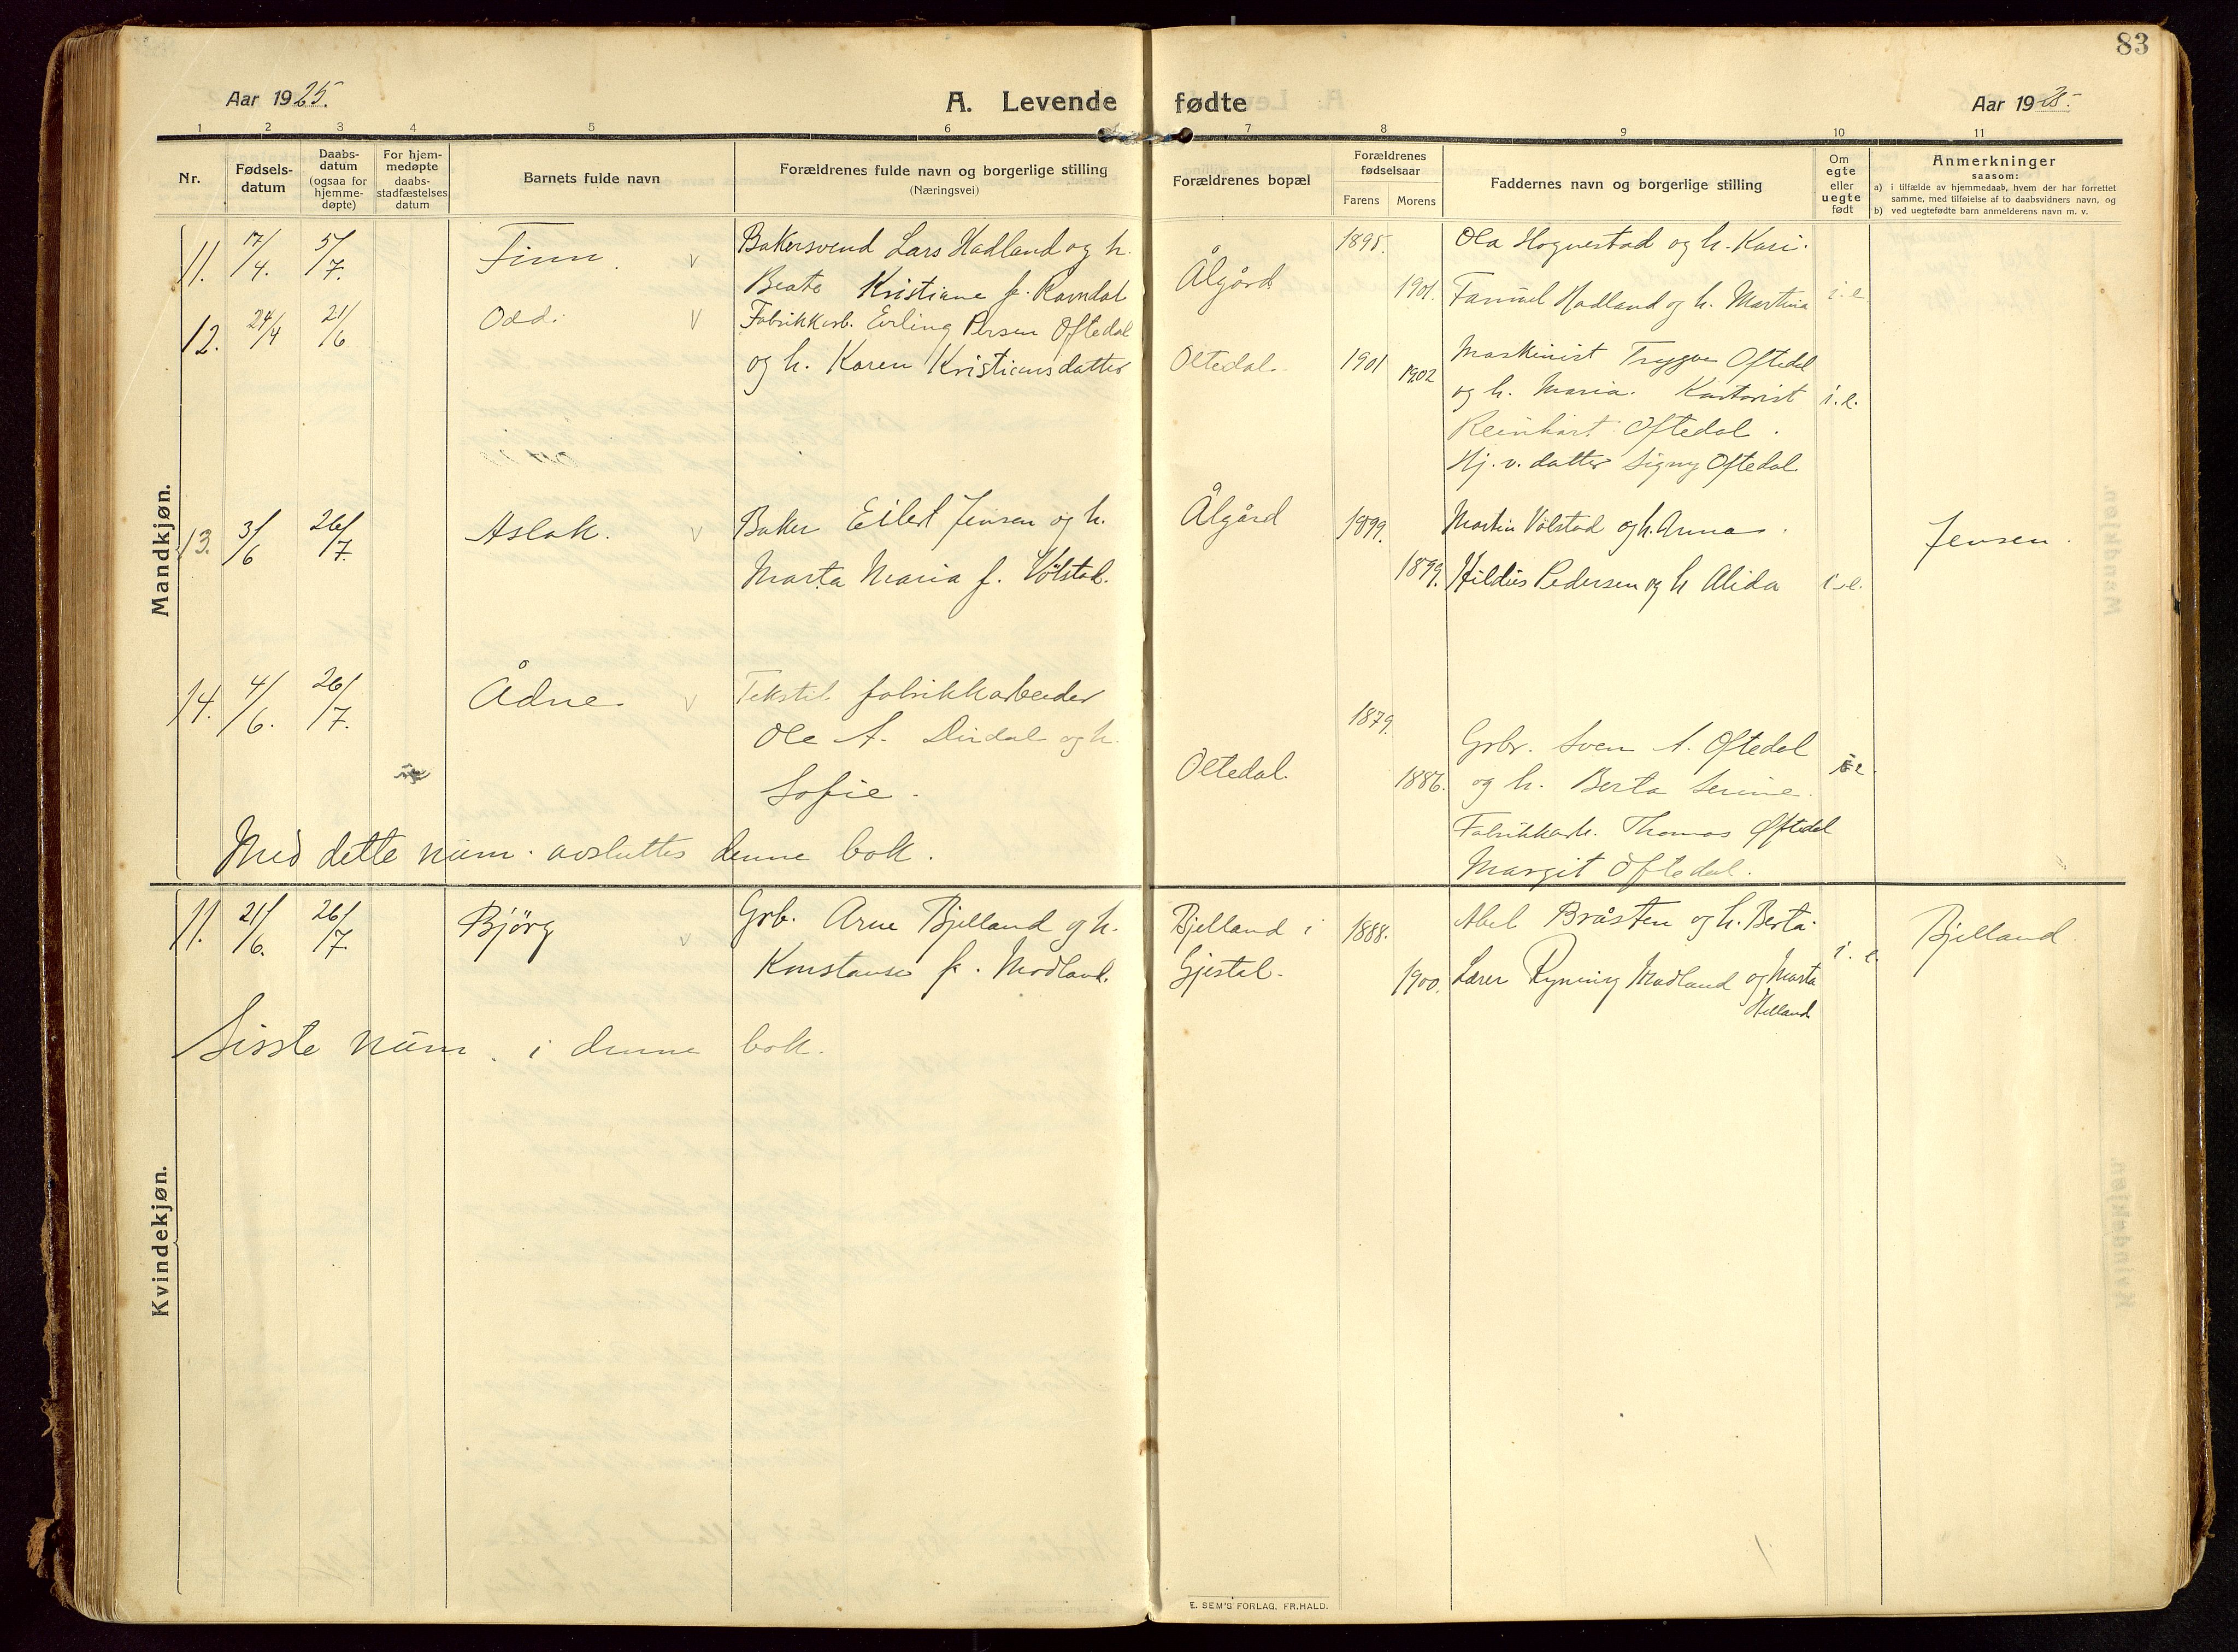 83
Aar 1925.
A. Levende fødte
Aar 1925.
1 2 3 4 5 6 7 8 9 10 11
Nr.
Fødsels-
datum
Daabs-
datum
(ogsaa for
hjemme-
døpte)
For hjem-
medøpte
daabs-
stadfæstelses
datum
Barnets fulde navn
Forældrenes fulde navn og borgerlige stilling
(Næringsvei)
Forældrenes bopæl
Forældrenes
fødselsaar
Farens Morens
Faddernes navn og borgerlige stilling
Om
egte
eller
uegte
født
Anmerkninger
saasom:
a) i tilfælde av hjemmedaab, hvem der har forrettet
samme, med tilføielse af to daabsvidners navn, og
b) ved uegtefødte barn anmelderens navn m. v.
Mandkjøn.
11. 17/4. 5/7. Finn. v Bakersvend Lars Hadland og h. Ålgård 1895. Ola Hognestad og h. Kari.
Beate Kristiane f. Ravndal 1901. Hadland og h. Martina i.e.
12. 24/4 21/6 Odd. v Fabrikkarb. Erling Persen Oftedal
og h. Karen Kristiansdatter Oltedal. 1901 1902 Maskinist Trygve Oftedal
og h. Maria. i.e.
Reinhart Oftedal.
Hj. v. datter Signy Oftedal
13. 3/6 26/7. Aslak. v Baker Eilert Jensen og h. Ålgård 1899. Martin Vølstad og h. Anna. Jensen.
Marta Maria f. Vølstad. 1899. Hildus Pedersen og h Alida i.e.
14. 4/6. 26/7. Ådne. v Tekstil fabrikkarbeider
Ole A. Dirdal og h. 1879. Grbr. Sven A. Oftedal
Sofie. Oltedal. 1886. og h. Berta Serine. i.e.
Fabrikkarb. Thomas Oftedal
Margit Oftedal.
Med dette num. avsluttes denne bok.
Kvindekjøn.
11. 21/6. 26/7. Bjørg v Grb. Arne Bjelland og h. Bjelland i 1888. Abel Bråsten og h. Berta. i.e. Bjelland.
Konstanse f. Modland. Gjestal. 1900. Lærer Ryning Madland og Marta
Helland
Siste num. i denne bok.
E. SEM'S FORLAG, FR.HALD.